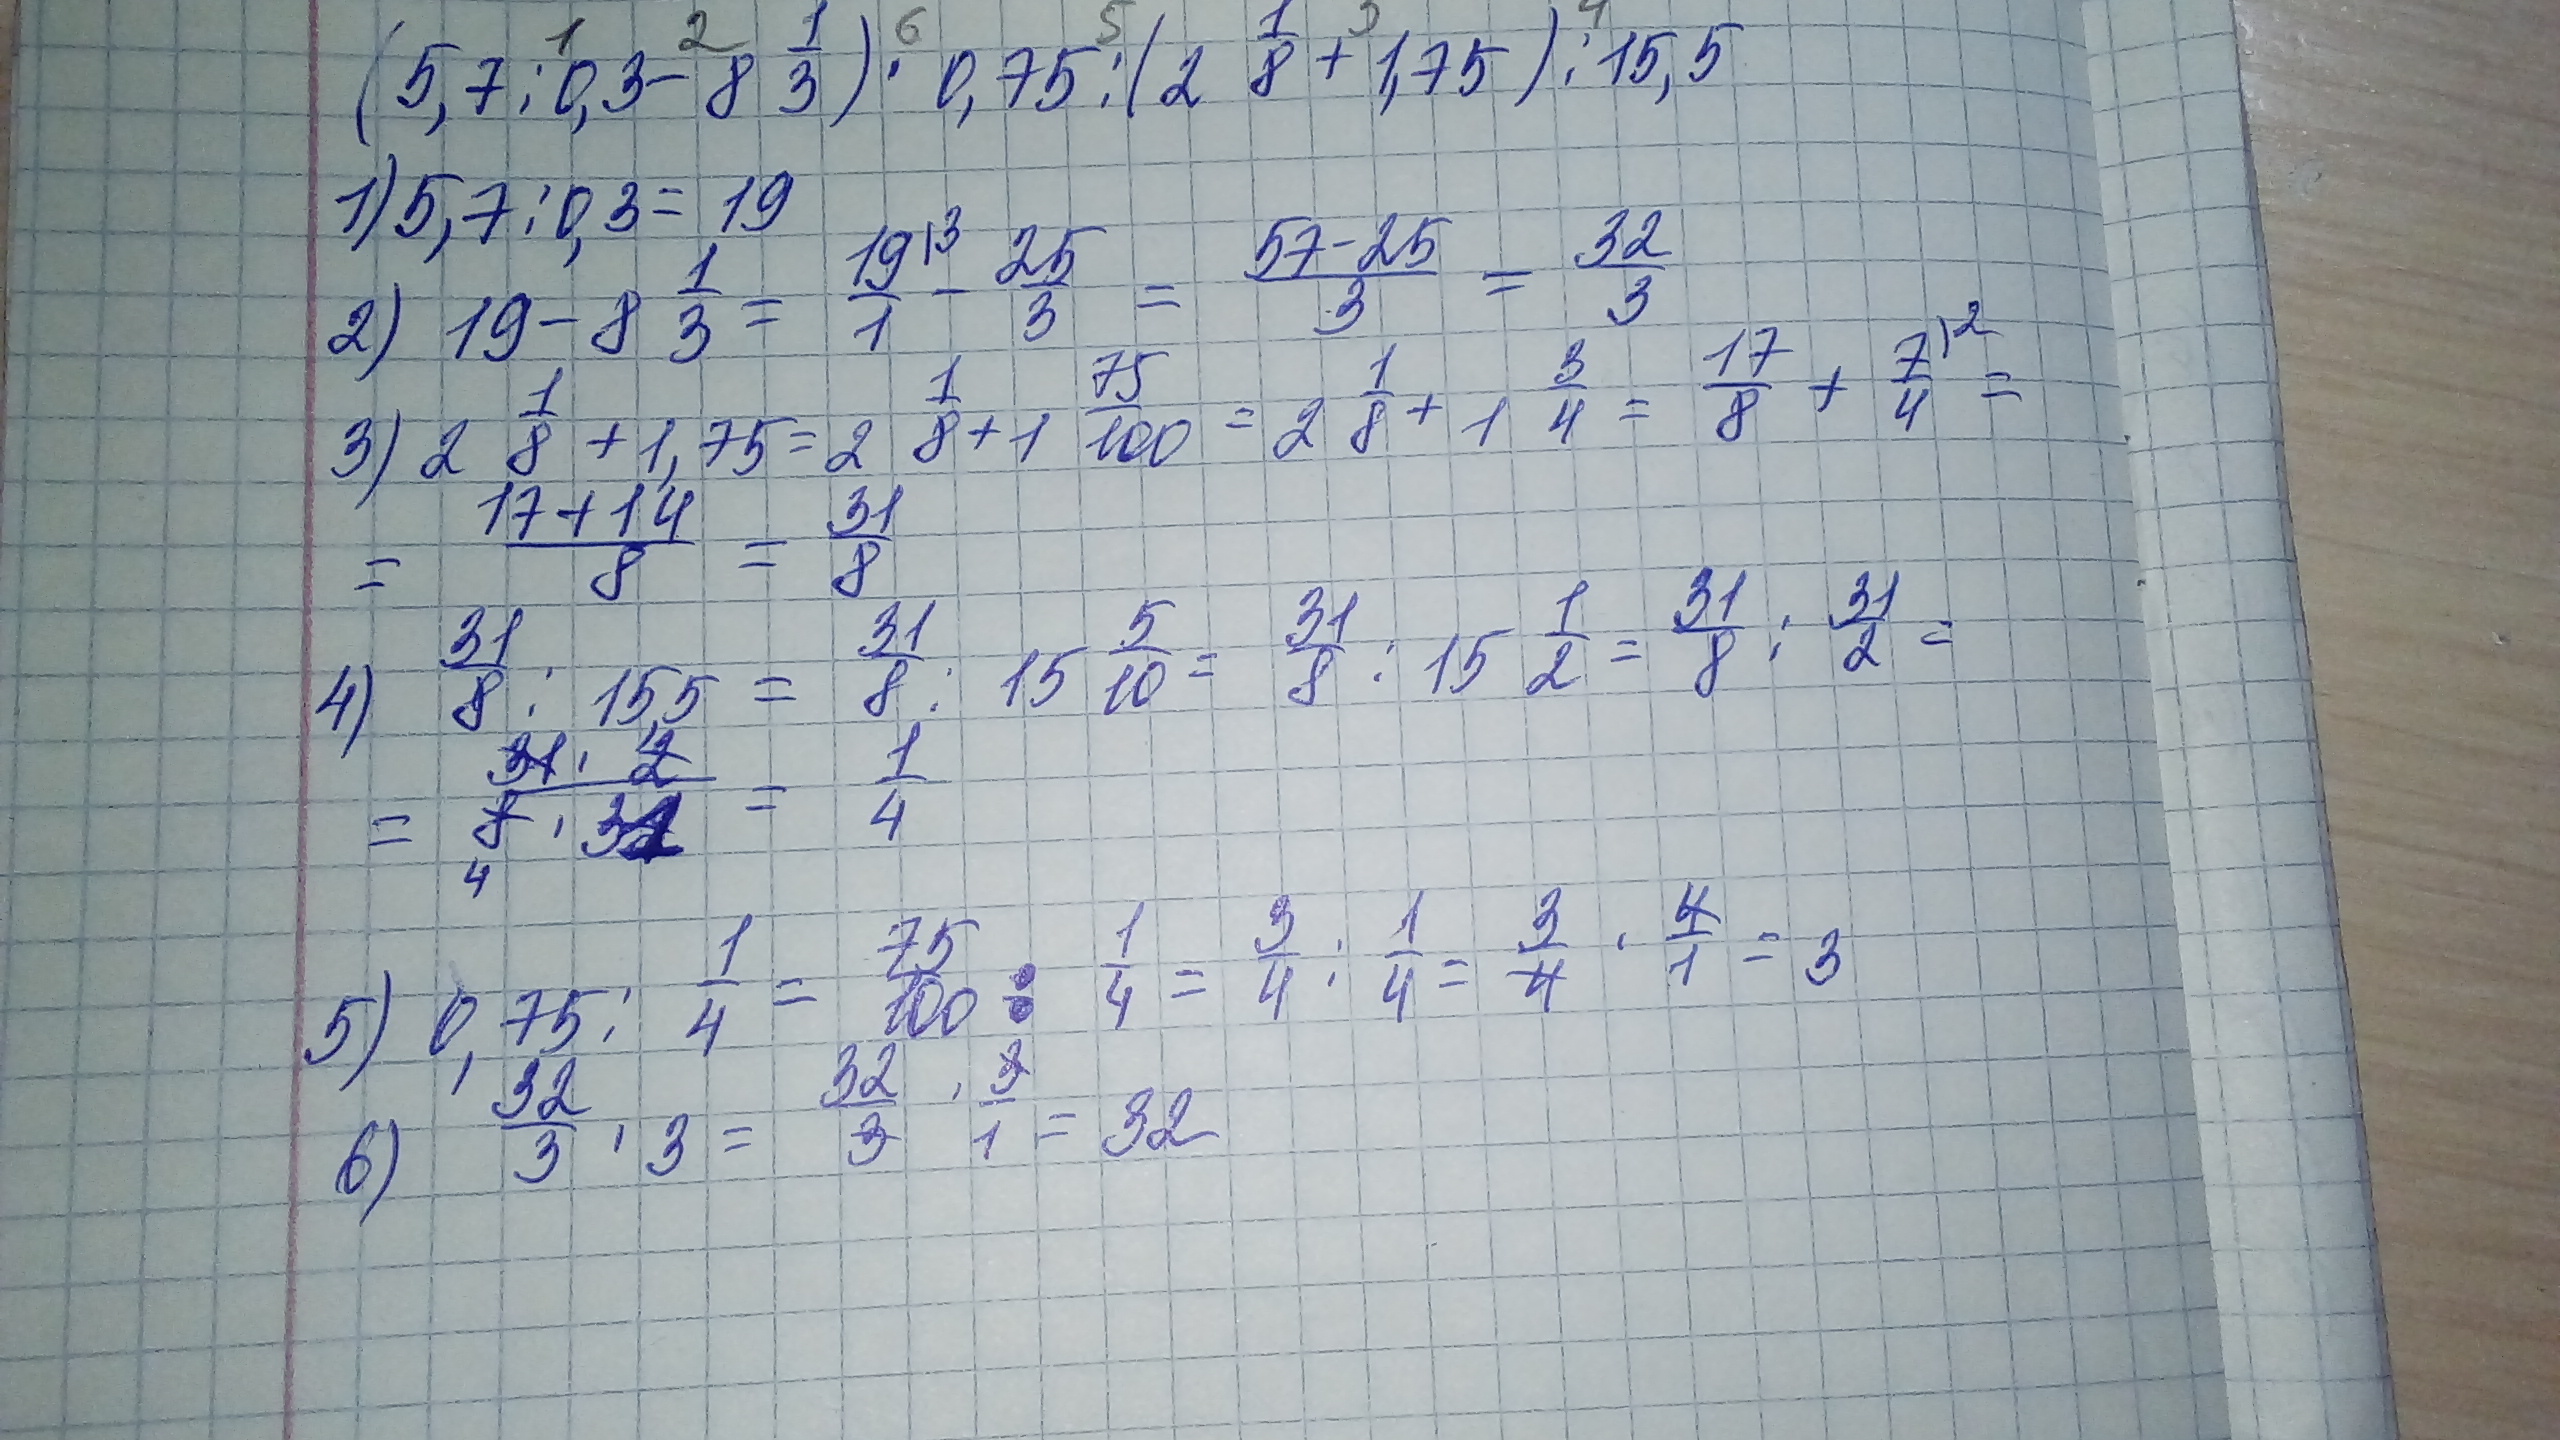 1 2 6 5 3 4
(5,7 : 0,3 - 8 1/3) · 0,75 : (2 1/8 + 1,75) : 15,5
1) 5,7 : 0,3 = 19
2) 19 - 8 1/3 = 19/1 \3 - 25/3 = 57-25/3 = 32/3
3) 2 1/8 + 1,75 = 2 1/8 + 1 75/100 = 2 1/8 + 1 3/4 = 17/8 + 7/4 \2 =
= 17+14/8 = 31/8
4) 31/8 : 15,5 = 31/8 : 15 5/10 = 31/8 : 15 1/2 = 31/8 : 31/2 =
= 31 · 2/8 · 31 = 1/4
4
5) 0,75 : 1/4 = 75/100 : 1/4 = 3/4 : 1/4 = 3/4 · 4/1 = 3
6) 32/3 · 3 = 32/3 · 3/1 = 32